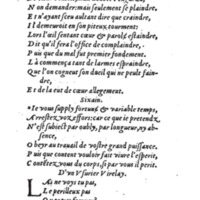 N on demander: mais seulement se plaindre,
E t n'ayant sçeu autant dire que craindre,
I l demeuroit en son piteux tourment:
Lors l'œil sentant cœur & parole estaindre
D it qu'il fera l'office de complaindre,
P uis que du mal fut premier fondement.
L à commença tant de larmes espraindre,
Que l'on cogneut son dueil qui ne peult faindre,
E t de la eut de cœur allegement.
Sixain.
I e vous supply fortune & variable temps,
A rrestez voz effors: car ce que ie pretendz
N'est subiect par oubly, par longueur, ny absence,
O bey au trauail de vostre grand puissance.
P uis que content vouloir fait viure l'esperit,
C ontentez vous du corps, si par vous il perit.
D'vn Vsurier Virelay.
L As, ne voy tu pas,
L e perilleux pas